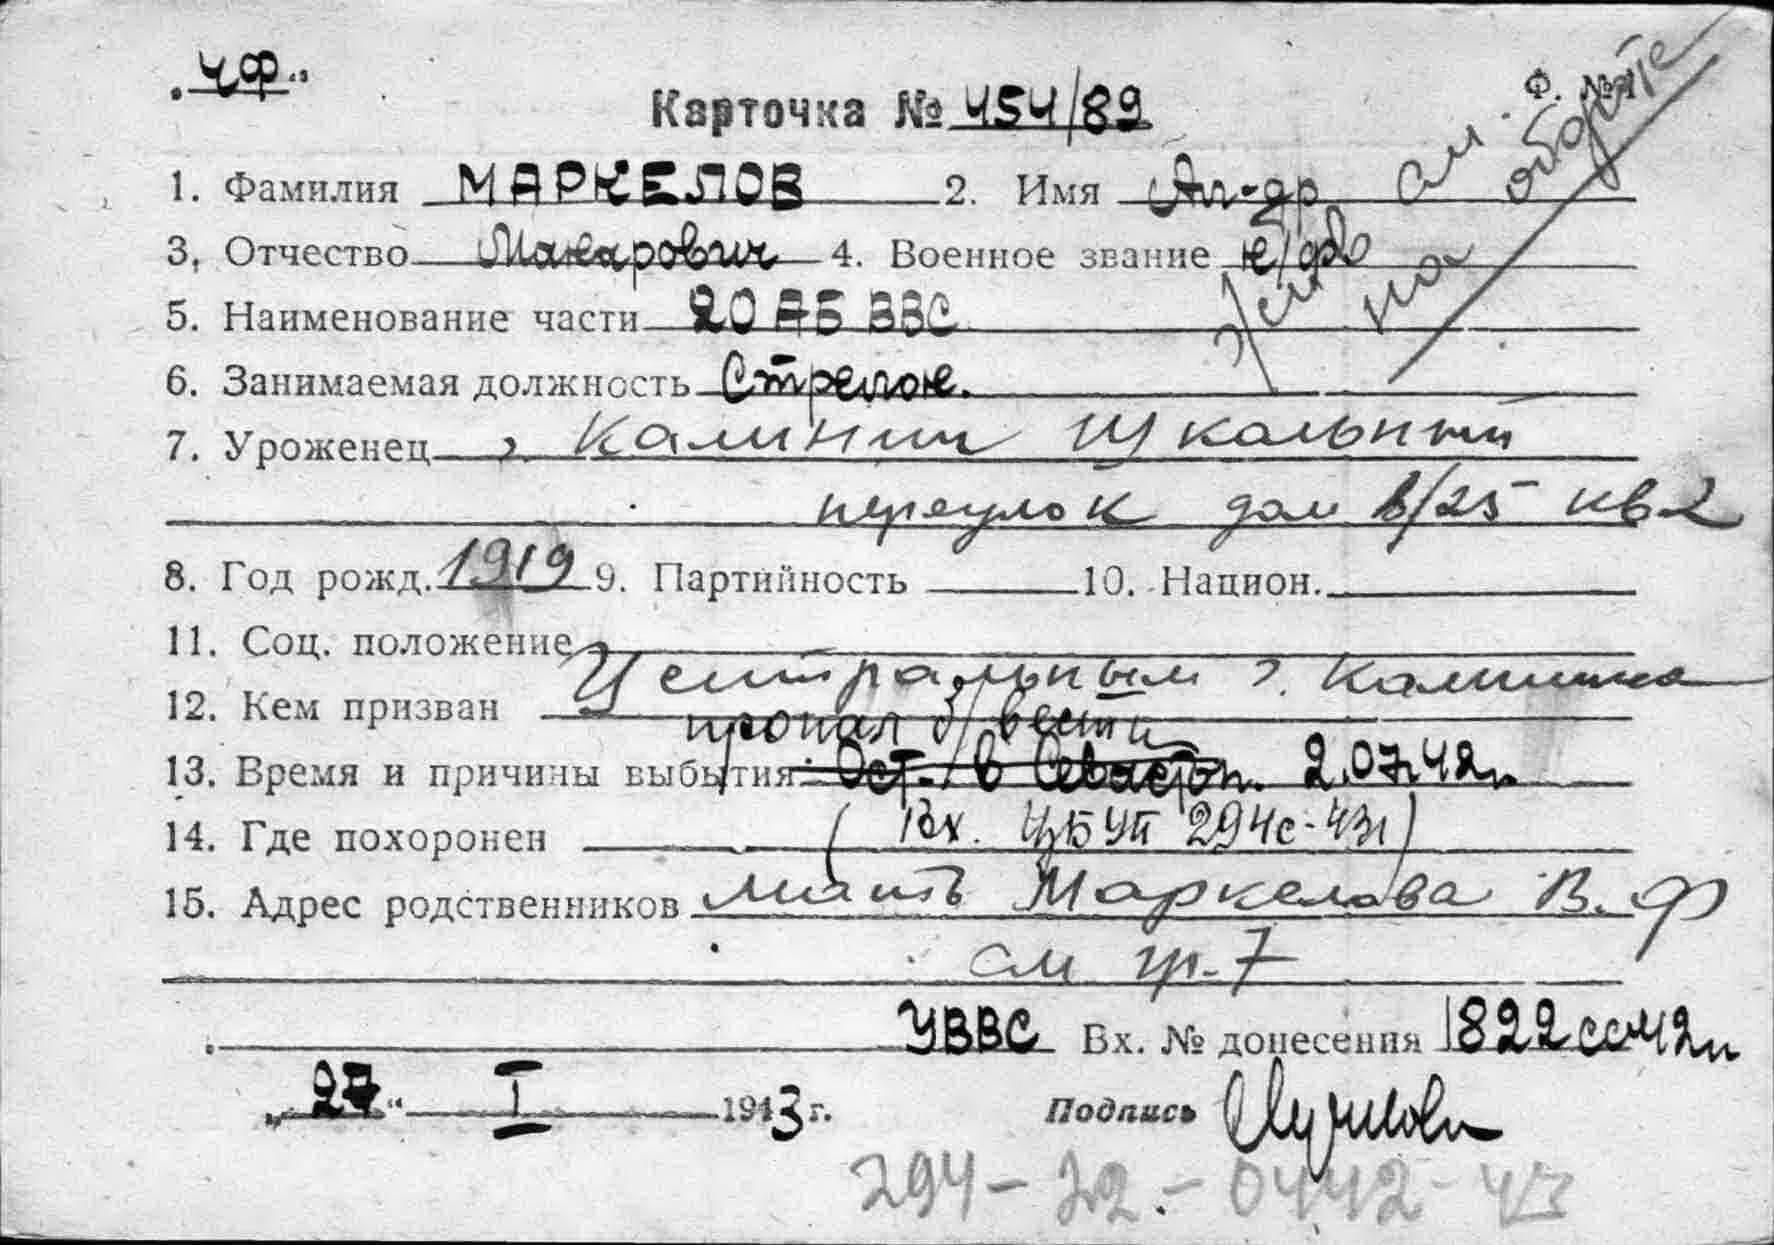 „ЧФ“
Ф. №
Карточка № 454/89
см. на обороте
1. Фамилия МАРКЕЛОВ 2. Имя Ал-др
3. Отчество Макарович 4. Военное звание к/фл
5. Наименование части 20 АБ ВВС
6. Занимаемая должность Стрелок.
7. Уроженец г. Калинин Школьный
переулок дом 8/25 кв 2
8. Год рожд. 1919 9. Партийность 10. Национ.
11. Соц. положение
12. Кем призван Центральным г. Калинина
пропал б/вести
13. Время и причины выбытия: Ост. в Севастоп. 2.07.42г
14. Где похоронен (Вх. ЦБУП 294с-43г)
15. Адрес родственников мать Маркелова В. Ф
см гр. 7
УВВС Вх. № донесения 1822сс42г
„27“ I 1943 г. Подпись
294-